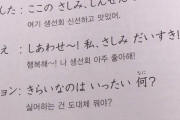 した：ここの さしみ、しんせん
여기 생선회 신선하고 맛있어.
え：しあわせ〜！私、さしみ だいすき！
행복해~! 나 생선회 아주 좋아해!
ョン：きらいなのは いったい 何？
싫어하는 건 도대체 뭐야?